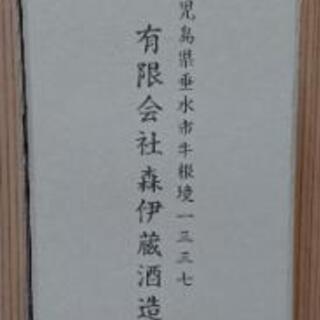 児島県垂水市牛根境一三三七
有限会社森伊蔵酒造